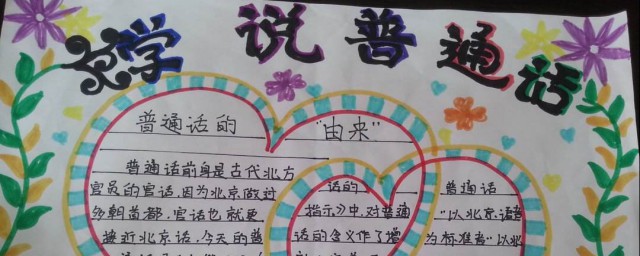 学说普通话
普通话的"由来"
普通话前身是古代北方
官员的官话,因为北京做过
多朝首都,官话也就更
接近北京话,今天的普
话的
指示》中,对普通
话的含义作了增
普通话
"以北京语音
为标准音"以北